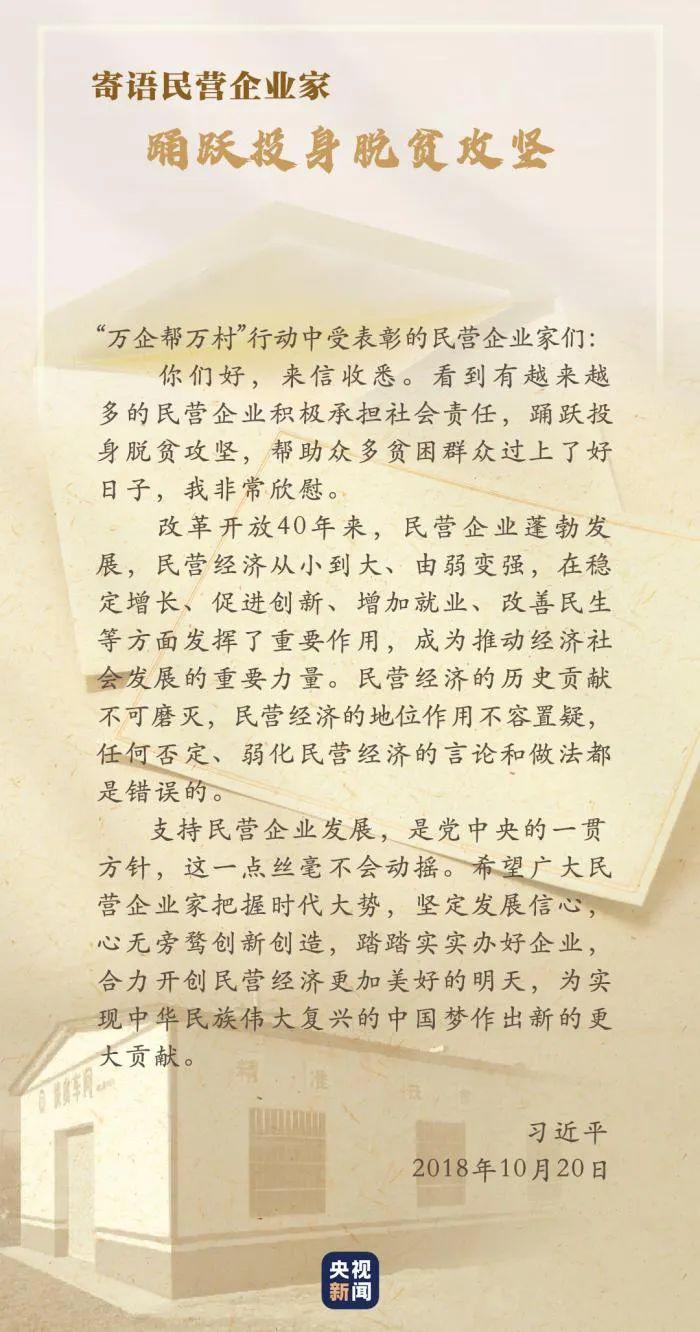 寄语民营企业家
踊跃投身脱贫攻坚
“万企帮万村”行动中受表彰的民营企业家们：
你们好，来信收悉。看到有越来越
多的民营企业积极承担社会责任，踊跃投
身脱贫攻坚，帮助众多贫困群众过上了好
日子，我非常欣慰。
改革开放40年来，民营企业蓬勃发
展，民营经济从小到大、由弱变强，在稳
定增长、促进创新、增加就业、改善民生
等方面发挥了重要作用，成为推动经济社
会发展的重要力量。民营经济的历史贡献
不可磨灭，民营经济的地位作用不容置疑，
任何否定、弱化民营经济的言论和做法都
是错误的。
支持民营企业发展，是党中央的一贯
方针，这一点丝毫不会动摇。希望广大民
营企业家把握时代大势，坚定发展信心，
心无旁骛创新创造，踏踏实实办好企业，
合力开创民营经济更加美好的明天，为实
现中华民族伟大复兴的中国梦作出新的更
大贡献。
精准
扶贫车间
习近平
2018年10月20日
央视
新闻